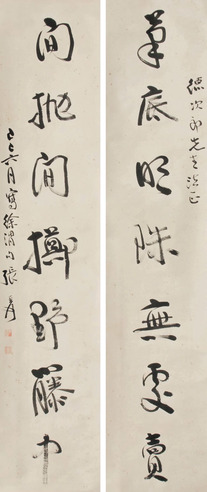 德次郎先生法正
筆底明珠無處賣
閒拋閒擲野藤中
己巳六月寫徐渭句張爰